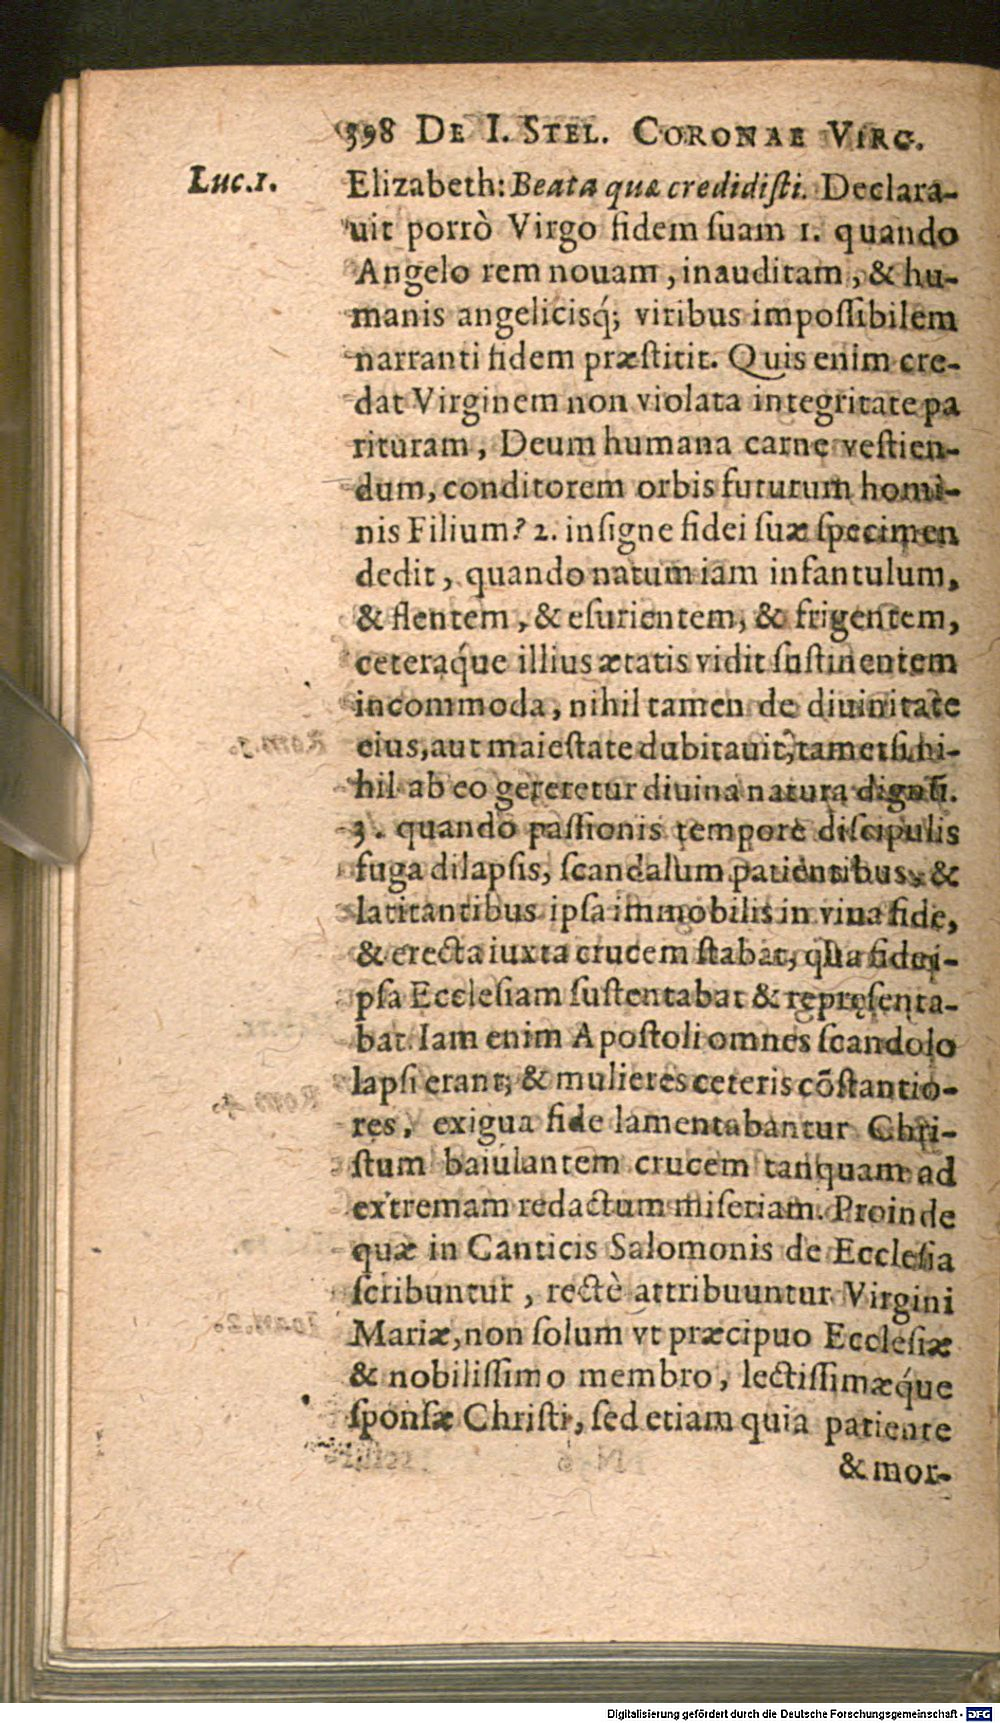 398 DE I. STEL. CORONAE VIRG.
Luc.1.
Elizabeth: Beata quæ credidiſti. Declara-
uit porrò Virgo fidem ſuam 1. quando
Angelo rem nouam, inauditam, & hu-
manis angelicisq́; viribus impoſſibilem
narranti fidem præſtitit. Quis enim cre-
dat Virginem non violata integritate pa
rituram, Deum humana carne veſtien-
dum, conditorem orbis futurum homi-
nis Filium? 2. inſigne fidei ſuæ ſpecimen
dedit, quando natum iam infantulum,
& flentem, & eſurientem, & frigentem,
ceteraq́ue illius ætatis vidit ſuſtinentem
incommoda, nihil tamen de diuinitate
eius, aut maieſtate dubitauit, tametſi ni-
hil ab eo gereretur diuina natura dignũ.
3. quando paſſionis tempore diſcipulis
fuga dilapſis, ſcandalum patientibus, &
latitantibus ipſa immobilis in viua fide,
& erecta iuxta crucem ſtabat, ſua fide i-
pſa Eccleſiam ſuſtentabat & repręſenta-
bat. Iam enim Apoſtoli omnes ſcandolo
lapſi erant; & mulieres ceteris cõſtantio-
res, exigua fide lamentabantur Chri-
ſtum baiulantem crucem tanquam ad
extremam redactum miſeriam. Proinde
quæ in Canticis Salomonis de Eccleſia
ſcribuntur, rectè attribuuntur Virgini
Mariæ, non ſolum vt præcipuo Eccleſiæ
& nobiliſſimo membro, lectiſſimæq́ue
ſponſæ Chriſti, ſed etiam quia patiente
& mor-
Digitalisierung gefördert durch die Deutsche Forschungsgemeinschaft - DFG